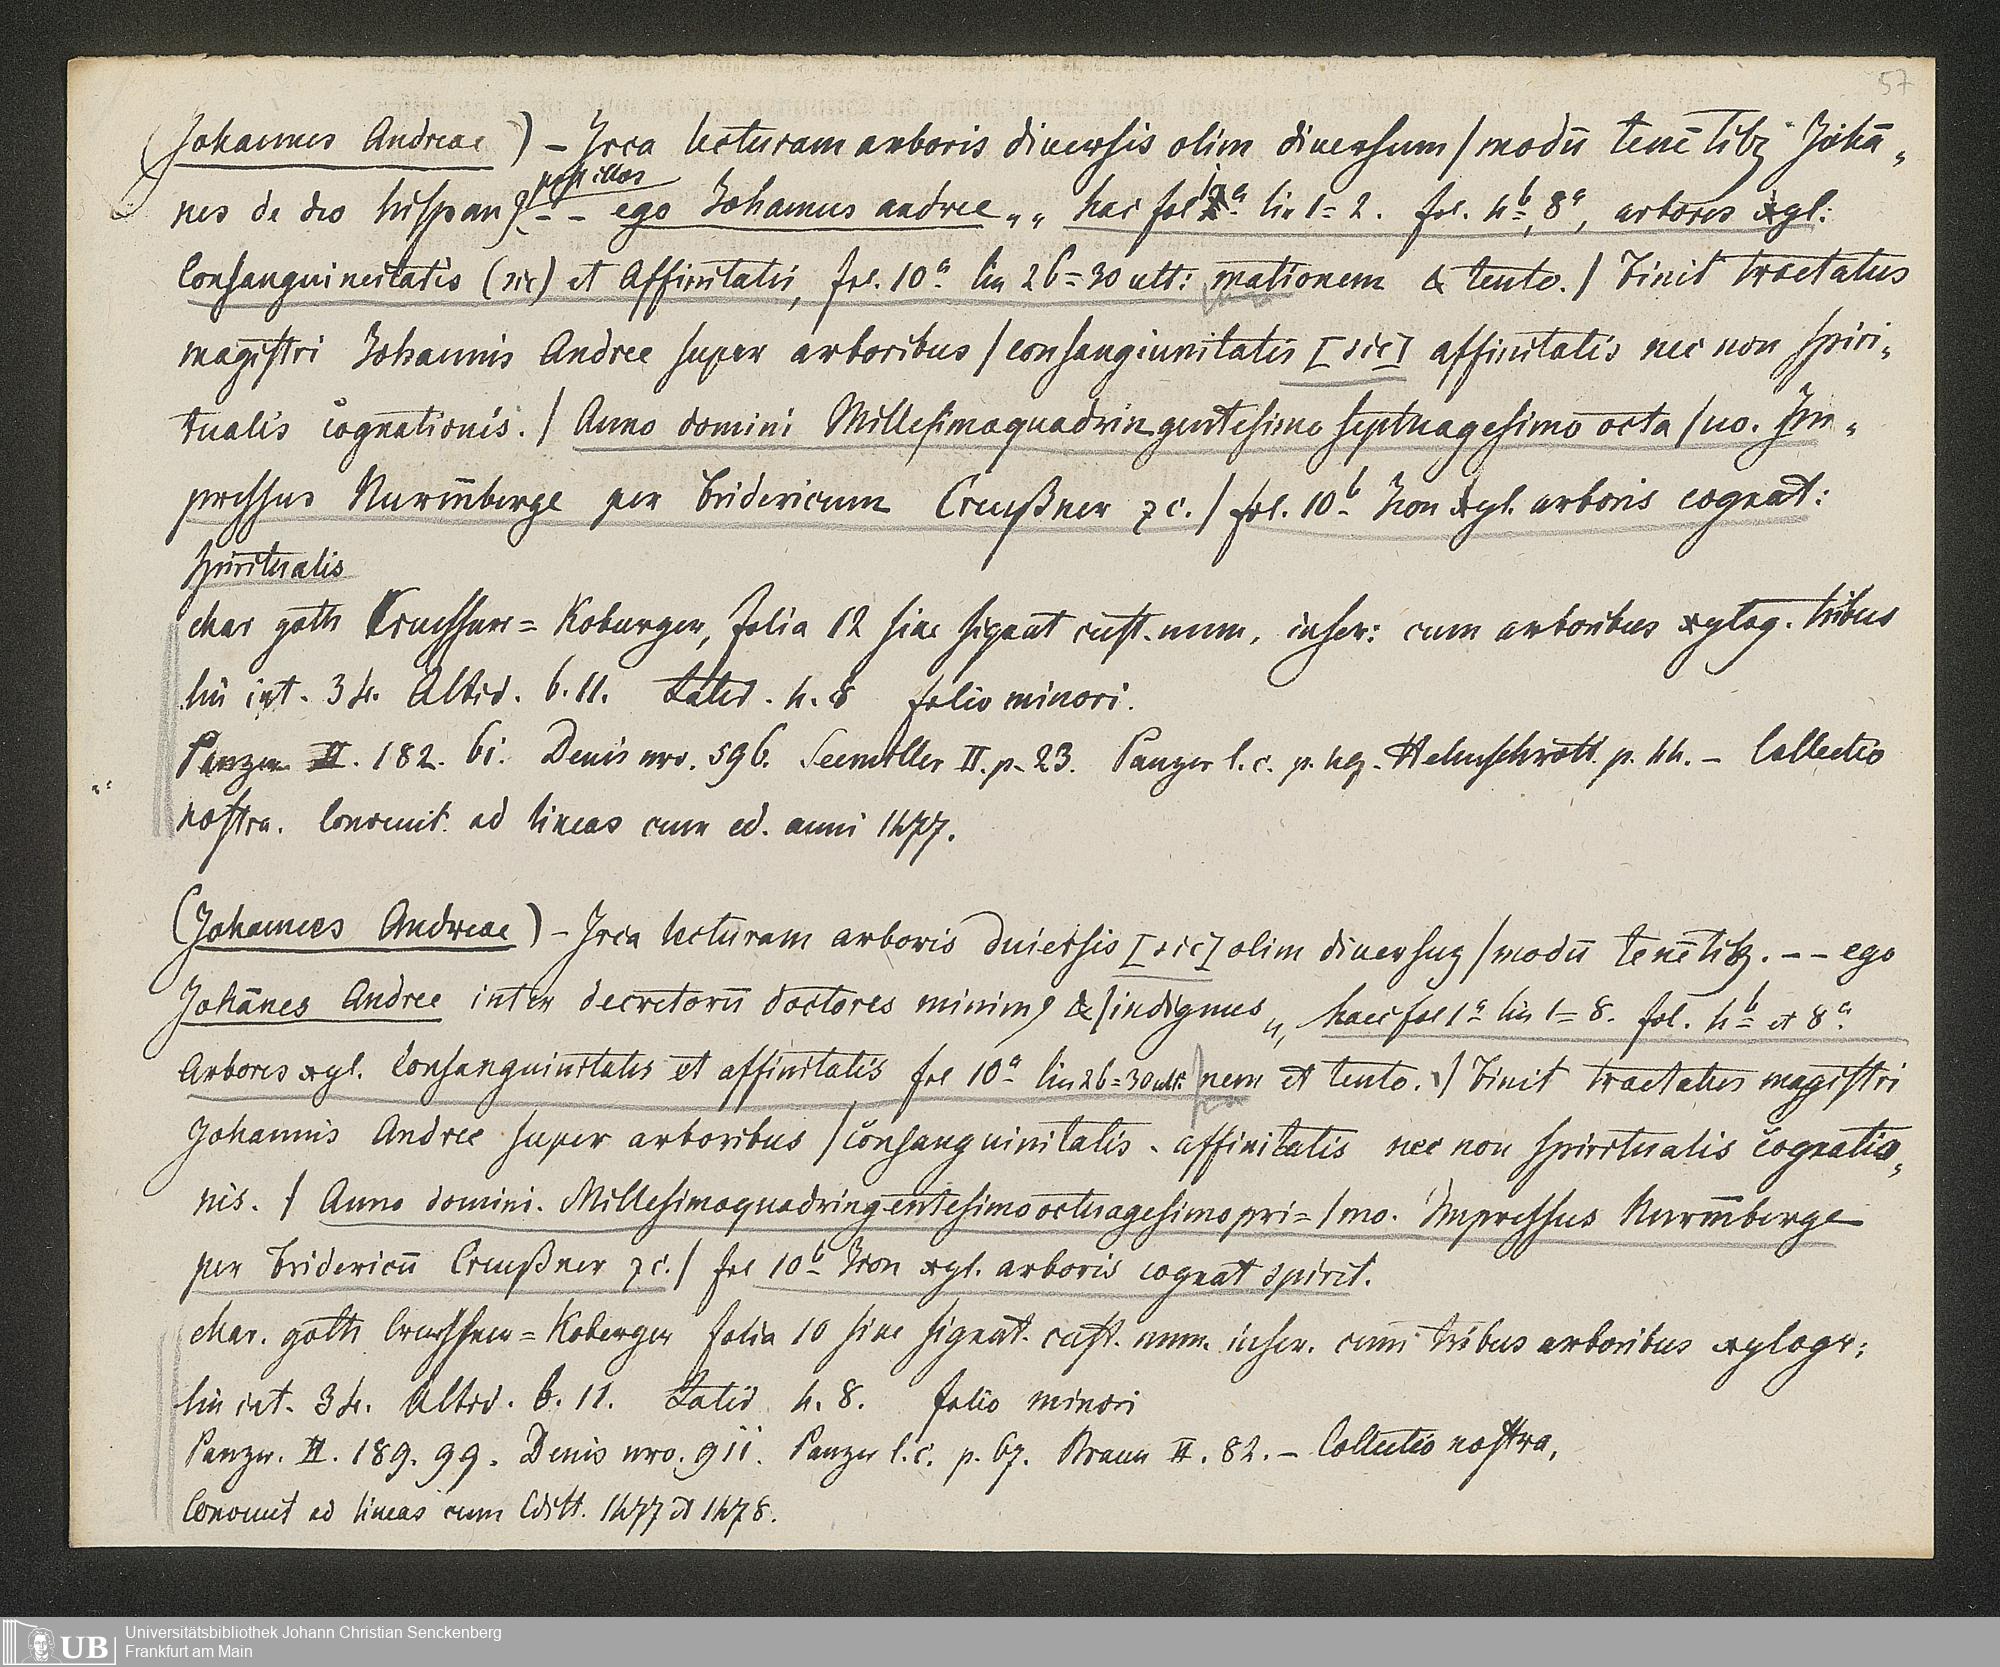 57
(Johannes Andreae) – Irca lecturam arboris diuersis olim diuersum / modū tenētibꝫ Johā„
pusillos
nes de deo hispanꝰ. – – ego Johannes andree „ „ haec fol 1ª lin 1=2. fol. 4ᵇ, 8ª, arbores xyl:
Consanguineitatis (sic) et Affinitatis, fol. 10ª lin 26=30 ult: mationem & tento. / Finit tractatus
magistri Johannis Andree super arboribus / consanguinitatis [sic] affinitatis nec non spiri„
tualis cognationis. / Anno domini Millesimoquadringentesimo septuagesimo octa / uo. Im„
pressus Nurm̄berge per Fridericum Creußner ꝛc. / fol. 10ᵇ Icon xyl. arboris cognat:
spiritualis
char goth Creussner= Koburger, folia 12 sine signat cust. num, inser: cum arboribus xylog. tribus
lin int. 34. Altid. 6.11. Latid. 4.8 folio minori.
Panzer II. 182. 61. Denis nro. 596. Seemiller II. p. 23. Panzer l.c. p. 49. Helmschrott p. 44. – Collectio
nostra. Convenit ad lineas cum ed. anni 1477.
(Johannes Andreae) – Irca lecturam arboris duiersis [sic] olim diuersuꝫ / modū tenētibꝫ. – – ego
Johānes Andree inter decretorū doctores minimꝰ & / indignus „ haec fol 1ª lin 1=8. fol. 4ᵇ et 8ª.
Arbores xyl. Consanguinitatis et affinitatis fol 10ª lin 26=30 ult: nem et tento. / Finit tractatus magistri
Johannis Andree super arboribus / consanguinitatis. affinitatis nec non spiritualis cognatio„
nis. / Anno domini. Millesimoquadringentesimooctuagesimopri= / mo. Impressus Nurm̄berge
per Fridericū Creußner ꝛc. / fol 10ᵇ Icon xyl. arboris cognat spirit.
char. goth Creussner= Koberger folia 10 sine signat. cust. num. inser. cum tribus arboribus xylogr:
lin int. 34. Altid. 6.11. Latid 4.8. folio minori
Panzer. II. 189. 99. Denis nro. 911. Panzer l.c. p. 67. Braun II. 82. – Collectio nostra,
Convenit ad lineas cum Editt. 1477 et 1478.
UB
Universitätsbibliothek Johann Christian Senckenberg
Frankfurt am Main